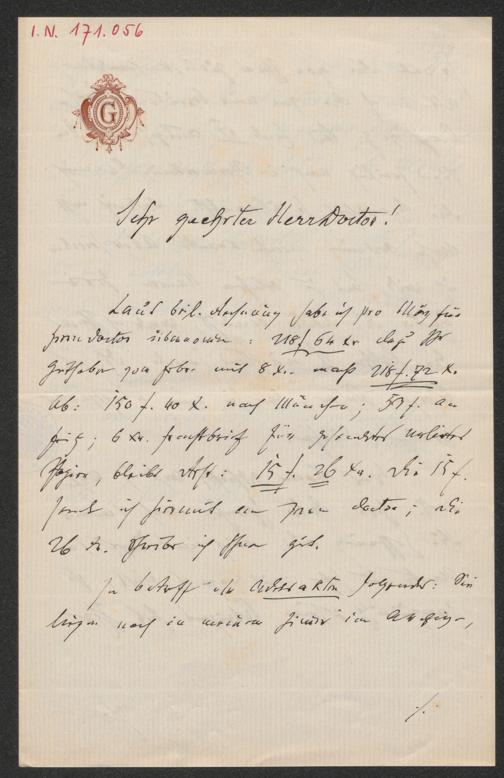 I.N. 171.056
G
Sehr geehrter Herr Doctor!
Laut beil. Rechnung habe ich pro März für
Herrn Doctor übernommen: 218 f 64 xr dazu Ihr
Guthaben vom Febr. mit 8 x. macht 218 f. 72 x.
ab: 150 f. 40 x. nach München; 53 f. an
6 xr. für
, bleibt Rest: 15 f. 26 xr. Die 15 f.
sende ich hiermit an Herrn Doctor; die
26 xr. schreibe ich Ihnen gut.
In betreff der folgendes: Sie
liegen noch in meinem Zimmer im
./.